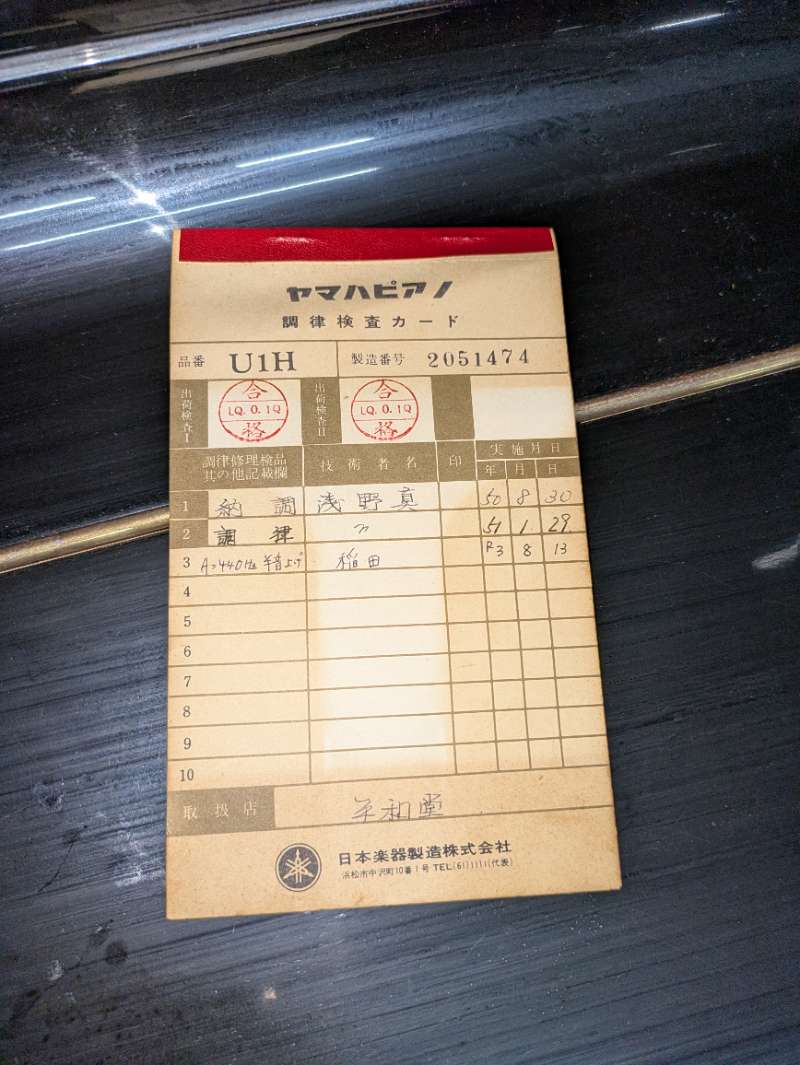 ヤマハピアノ
調律検査カード
品番 U1H 製造番号 2051474
出荷検査I 合 LQ.0.1Q 格 出荷検査II 合 LQ.0.1Q 格
調律修理検品其の他記載欄 技術者名 印 実施月日
年 月 日
1 納調 浅野真 50 8 30
2 調律 〃 51 1 29
3 A=440Hz 半音上げ 稲田 R3 8 13
4
5
6
7
8
9
10
取扱店 平和堂
日本楽器製造株式会社
浜松市中沢町10番1号 TEL(61)1111(代表)